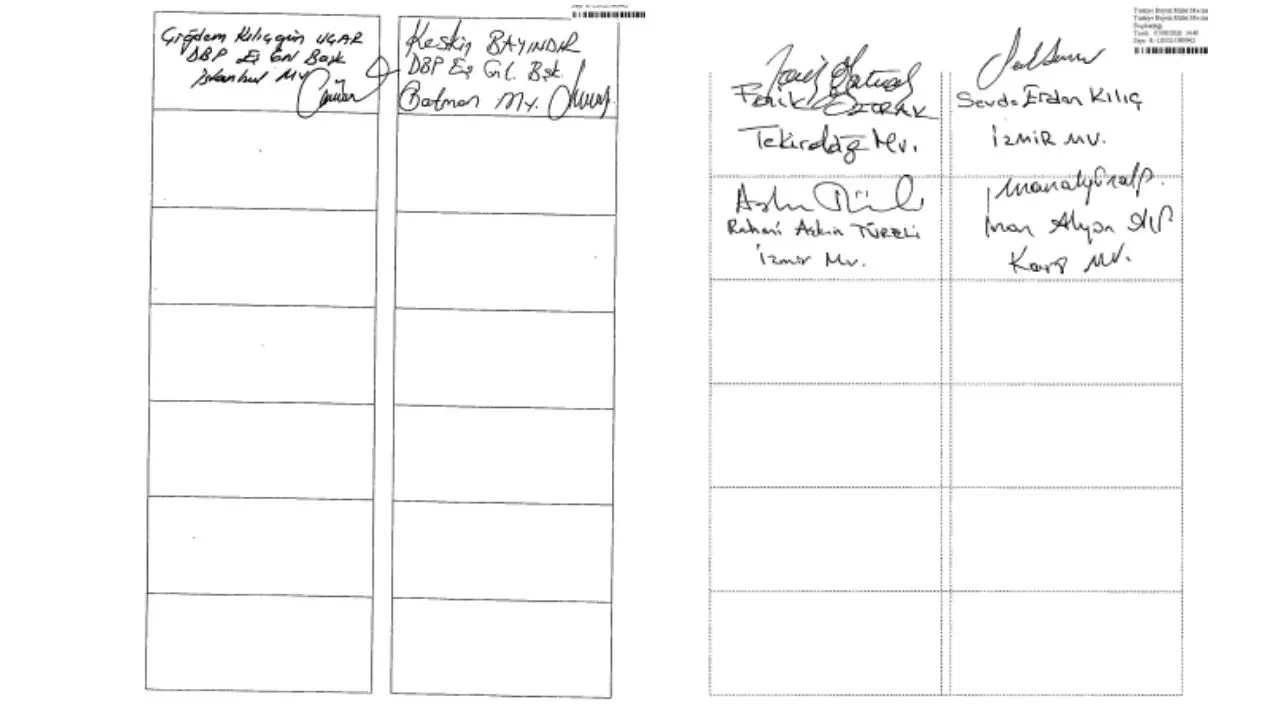 Çiğdem Kılıçgün UÇAR
DBP Eş Gn Başk
İstanbul Mv
Keskin BAYINDIR
DBP Eş Gl. Bşk.
Batman Mv.
Türkiye Büyük Millet Meclisi
Türkiye Büyük Millet Meclisi
Başkanlığı
Faik ÖZTRAK
Tekirdağ Mv.
Sevda Erdan Kılıç
İzmir Mv.
Rahmi Aşkın TÜRELİ
İzmir Mv.
İnan Akgün Alp
Kars Mv.